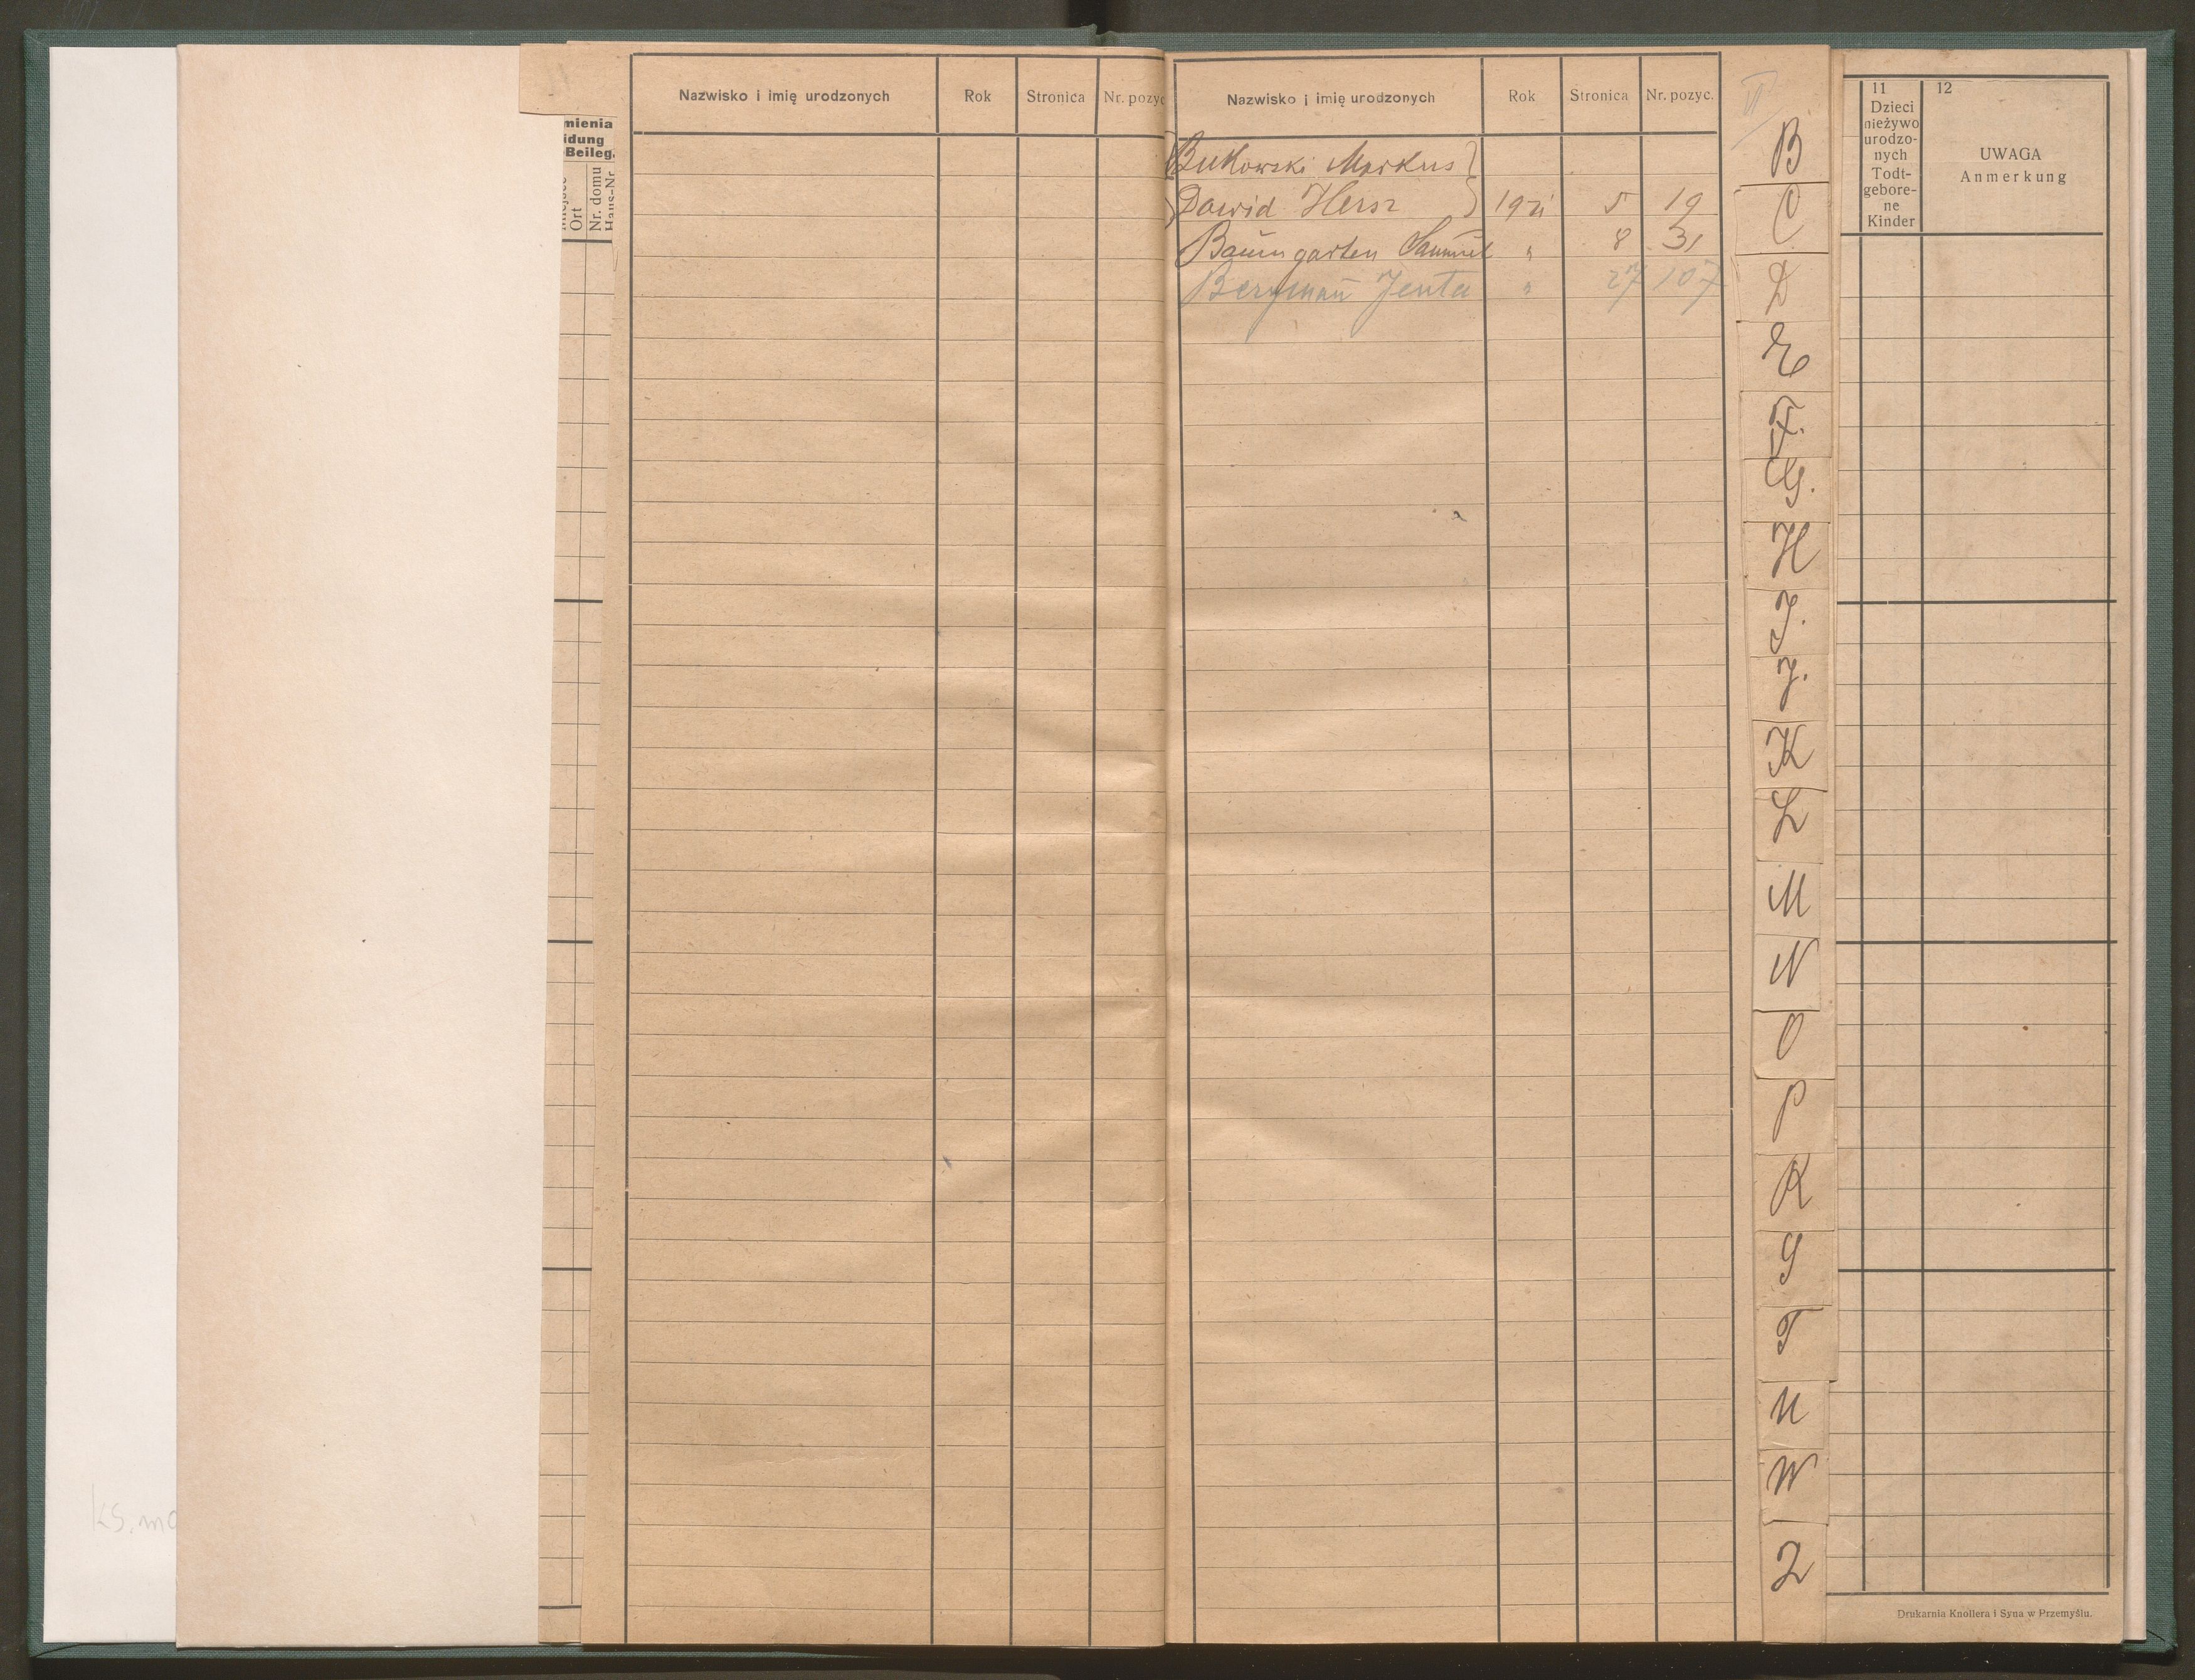 mienia
idung
Beileg.
Ort
Nr. domu
Haus-Nr
Nazwisko i imię urodzonych Rok Stronica Nr. pozyc
Nazwisko i imię urodzonych Rok Stronica Nr. pozyc.
Bukowski Markus
Dawid Hersz 1921 5 19
Baumgarten Samuel " 8 31
Bergman Jenta " 27 107
VI
B
C
D
E
F.
G.
H
I.
J.
K
L
M
N
O
P
R
S
T
U
W
Z
11
Dzieci
nieżywo
urodzo-
nych
Todt-
gebore-
ne
Kinder
12
UWAGA
Anmerkung
Drukarnia Knollera i Syna w Przemyślu.
ks. mo